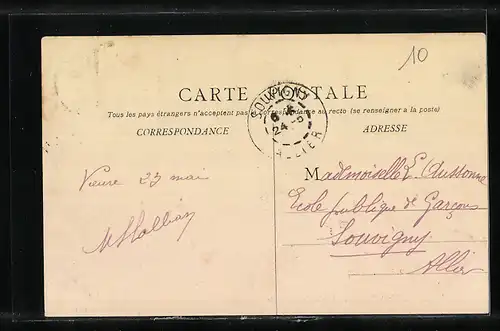 10
CARTE POSTALE
Tous les pays étrangers n'acceptent pas la correspondance au recto (se renseigner à la poste)
CORRESPONDANCE
ADRESSE
SOUVIGNY
24 -5
ALLIER
Vieure 23 mai
Mademoiselle E. Aussonne
Ecole publique de Garçons
Souvigny
Allier